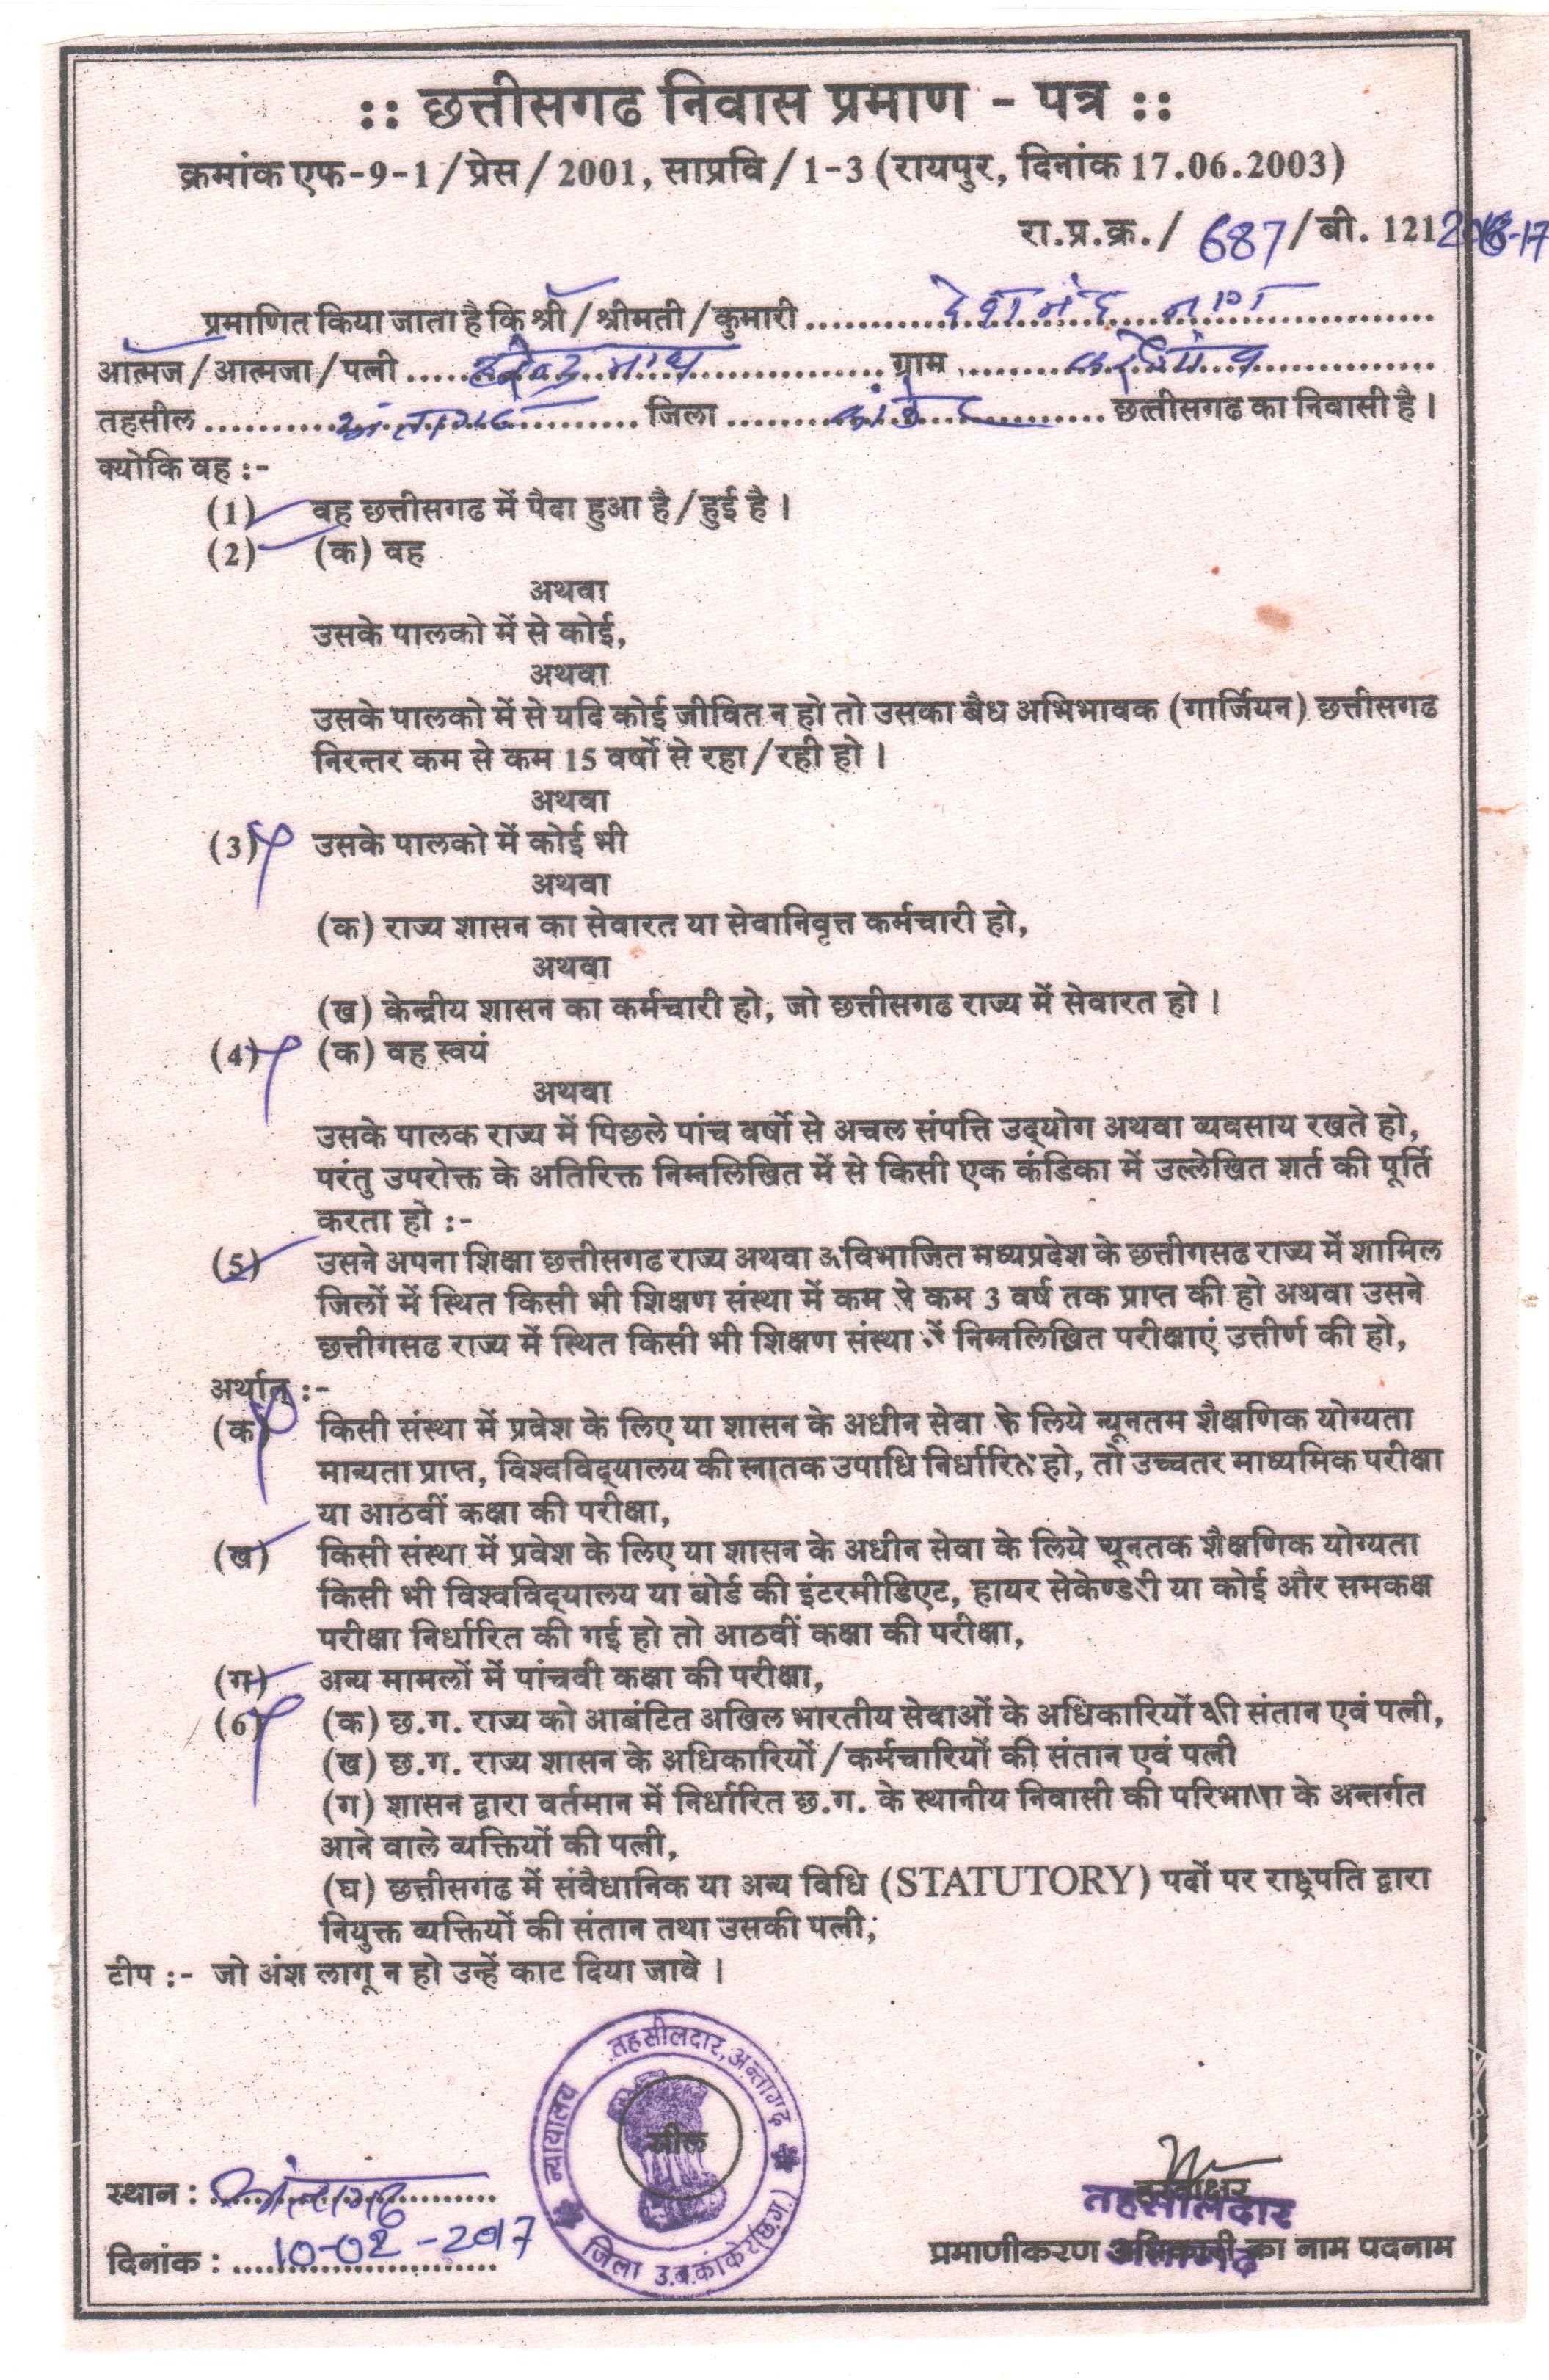 :: छत्तीसगढ निवास प्रमाण - पत्र ::
क्रमांक एफ-9-1/प्रेस/2001, साप्रवि/1-3 (रायपुर, दिनांक 17.06.2003)
रा.प्र.क्र./ 687/बी. 121 -17
प्रमाणित किया जाता है कि श्री/श्रीमती/कुमारी
आत्मज/आत्मजा/पत्नी ग्राम
तहसील अंतागढ जिला कांकेर छत्तीसगढ का निवासी है।
क्योकि वह :-
(1) वह छत्तीसगढ में पैदा हुआ है/हुई है।
(2) (क) वह
अथवा
उसके पालको में से कोई,
अथवा
उसके पालको में से यदि कोई जीवित न हो तो उसका बैध अभिभावक (गार्जियन) छत्तीसगढ
निरन्तर कम से कम 15 वर्षो से रहा/रही हो।
अथवा
(3) उसके पालको में कोई भी
अथवा
(क) राज्य शासन का सेवारत या सेवानिवृत्त कर्मचारी हो,
अथवा
(ख) केन्द्रीय शासन का कर्मचारी हो, जो छत्तीसगढ राज्य में सेवारत हो।
(4) (क) वह स्वयं
अथवा
उसके पालक राज्य में पिछले पांच वर्षो से अचल संपत्ति उद्‌योग अथवा व्यवसाय रखते हो,
परंतु उपरोक्त के अतिरिक्त निम्नलिखित में से किसी एक कंडिका में उल्लेखित शर्त की पूर्ति
करता हो :-
(5) उसने अपना शिक्षा छत्तीसगढ राज्य अथवा अविभाजित मध्यप्रदेश के छत्तीगसढ राज्य में शामिल
जिलों में स्थित किसी भी शिक्षण संस्था में कम से कम 3 वर्ष तक प्राप्त की हो अथवा उसने
छत्तीगसढ राज्य में स्थित किसी भी शिक्षण संस्था में निम्नलिखित परीक्षाएं उत्तीर्ण की हो,
अर्थात् :-
(क) किसी संस्था में प्रवेश के लिए या शासन के अधीन सेवा के लिये न्यूनतम शैक्षणिक योग्यता
मान्यता प्राप्त, विश्वविद्‌यालय की स्नातक उपाधि निर्धारित हो, तो उच्चतर माध्यमिक परीक्षा
या आठवीं कक्षा की परीक्षा,
(ख) किसी संस्था में प्रवेश के लिए या शासन के अधीन सेवा के लिये न्यूनतक शैक्षणिक योग्यता
किसी भी विश्वविद्‌यालय या बोर्ड की इंटरमीडिएट, हायर सेकेण्डरी या कोई और समकक्ष
परीक्षा निर्धारित की गई हो तो आठवीं कक्षा की परीक्षा,
(ग) अन्य मामलों में पांचवी कक्षा की परीक्षा,
(6) (क) छ.ग. राज्य को आबंटित अखिल भारतीय सेवाओं के अधिकारियों की संतान एवं पत्नी,
(ख) छ.ग. राज्य शासन के अधिकारियों/कर्मचारियों की संतान एवं पत्नी
(ग) शासन द्वारा वर्तमान में निर्धारित छ.ग. के स्थानीय निवासी की परिभाषा के अन्तर्गत
आने वाले व्यक्तियों की पत्नी,
(घ) छत्तीसगढ में संवैधानिक या अन्य विधि (STATUTORY) पदों पर राष्ट्रपति द्वारा
नियुक्त व्यक्तियों की संतान तथा उसकी पत्नी;
टीप :- जो अंश लागू न हो उन्हें काट दिया जावे।
न्यायालय तहसीलदार, अन्तागढ़
सील
जिला उ.ब.कांकेर(छ.ग.)
स्थान : अंतागढ
हस्ताक्षर
तहसीलदार
दिनांक : 10-02-2017
प्रमाणीकरण अधिकारी का नाम पदनाम
अन्तागढ़